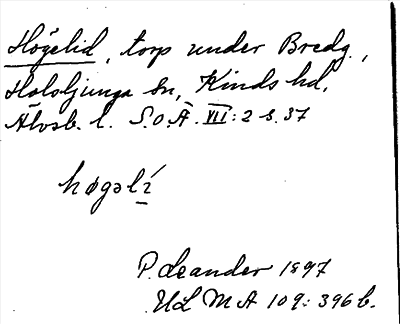 Högelid, torp under Bredg.,
Holsljunga sn, Kinds hd,
Älvsb. l. S.O.Ä. VII:2 s. 37
høgəlí
P. Leander 1897
ULMA 109:396 b.